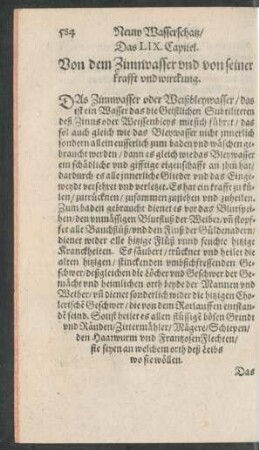 584 Neuw Wasserschatz/
Das LIX. Capitel.
Von dem Zinnwasser vnd von seiner
krafft vnd wirckung.
DAs Zinnwasser oder Weißbleywasser/das
ist ein Wasser das die Geistlichen Subtiliteten
deß Zinns oder Weissenbleys mit sich führet/das
sol auch gleich wie das Bleywasser nicht jnnerlich
sondern allein eusserlich zum baden vnd wäschen ge-
braucht werden/dann es gleich wie das Bleywasser
ein schädliche vnd gifftige eigenschafft an jhm hat/
dardurch es alle jnnerliche Glieder vnd das Einge-
weyd versehret vnd verletzet. Es hat ein krafft zu kü-
len/zutrücknen/zusammen zuziehen vnd zuheilen.
Zum baden gebraucht dienet es vor das Blutspey-
hen/den vnmässigen Blutfluß der Weiber/vñ stopf-
fet alle Bauchflüß/vnd den Fluß der Güldenadern/
dienet wider alle hitzige Flüß vnnd feuchte hitzige
Kranckheiten. Es säubert/trücknet vnd heilet die
alten hitzigen/stinckenden vmbsichfressenden Ge-
schwer/deßgleichen die Löcher vnd Geschwer der Ge-
mächt vnd heimlichen orth beyde der Mannen vnd
Weiber/vñ dienet sonderlich wider die hitzigen Cho-
lerische Geschwer/die von dem Rotlauffen entstan-
dẽ seind. Sonst heilet es allen flüssigẽ bösen Grindt
vnd Räuden/Zittermähler/Mägere/Schiepen/
den Haarwurm vnd Frantzosen Flechten/
sie seyen an welchem orth deß Leibs
wo sie wöllen.
Das